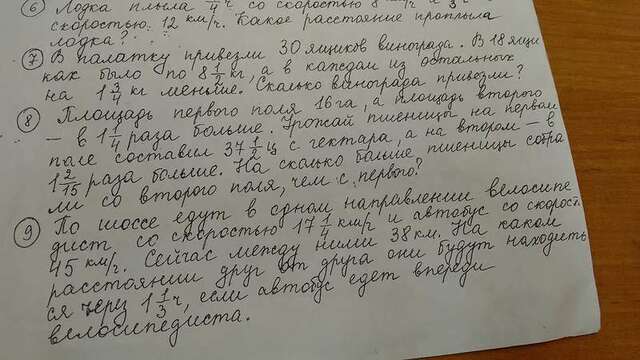 ⑥ Лодка плыла 1/4 ч со скоростью 8 км/ч и 3 ч
скоростью 12 км/ч. Какое расстояние проплыла
лодка?
⑦ В палатку привезли 30 ящиков винограда. В 18 ящи-
ках было по 8 1/2 кг, а в каждом из остальных
на 1 3/4 кг меньше. Сколько винограда привезли?
⑧ Площадь первого поля 16 га, а площадь второго
– в 1 1/4 раза больше. Урожай пшеницы на первом
поле составил 37 1/2 ц с гектара, а на втором – в
1 2/15 раза больше. На сколько больше пшеницы собра
ли со второго поля, чем с первого?
⑨ По шоссе едут в одном направлении велосипе-
дист со скоростью 17 1/4 км/ч и автобус со скорост
45 км/ч. Сейчас между ними 38 км. На каком
расстоянии друг от друга они будут находить
ся через 1 1/3 ч, если автобус едет впереди
велосипедиста.